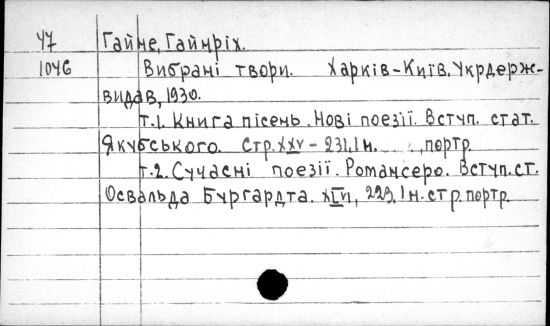 47 Гайне, Гайнріх.
1046 Вибрані твори. Харків-Київ, Укрдерж-
видав, 1930.
т.1. Книга пісень. Нові поезії. Вступ. стат.
Якубського. Стр. XXV - 231, 1 н. портр.
т.2. Сучасні поезії. Романсеро. Вступ. ст.
Освальда Бургардта. 229, 1 н. стр. портр.